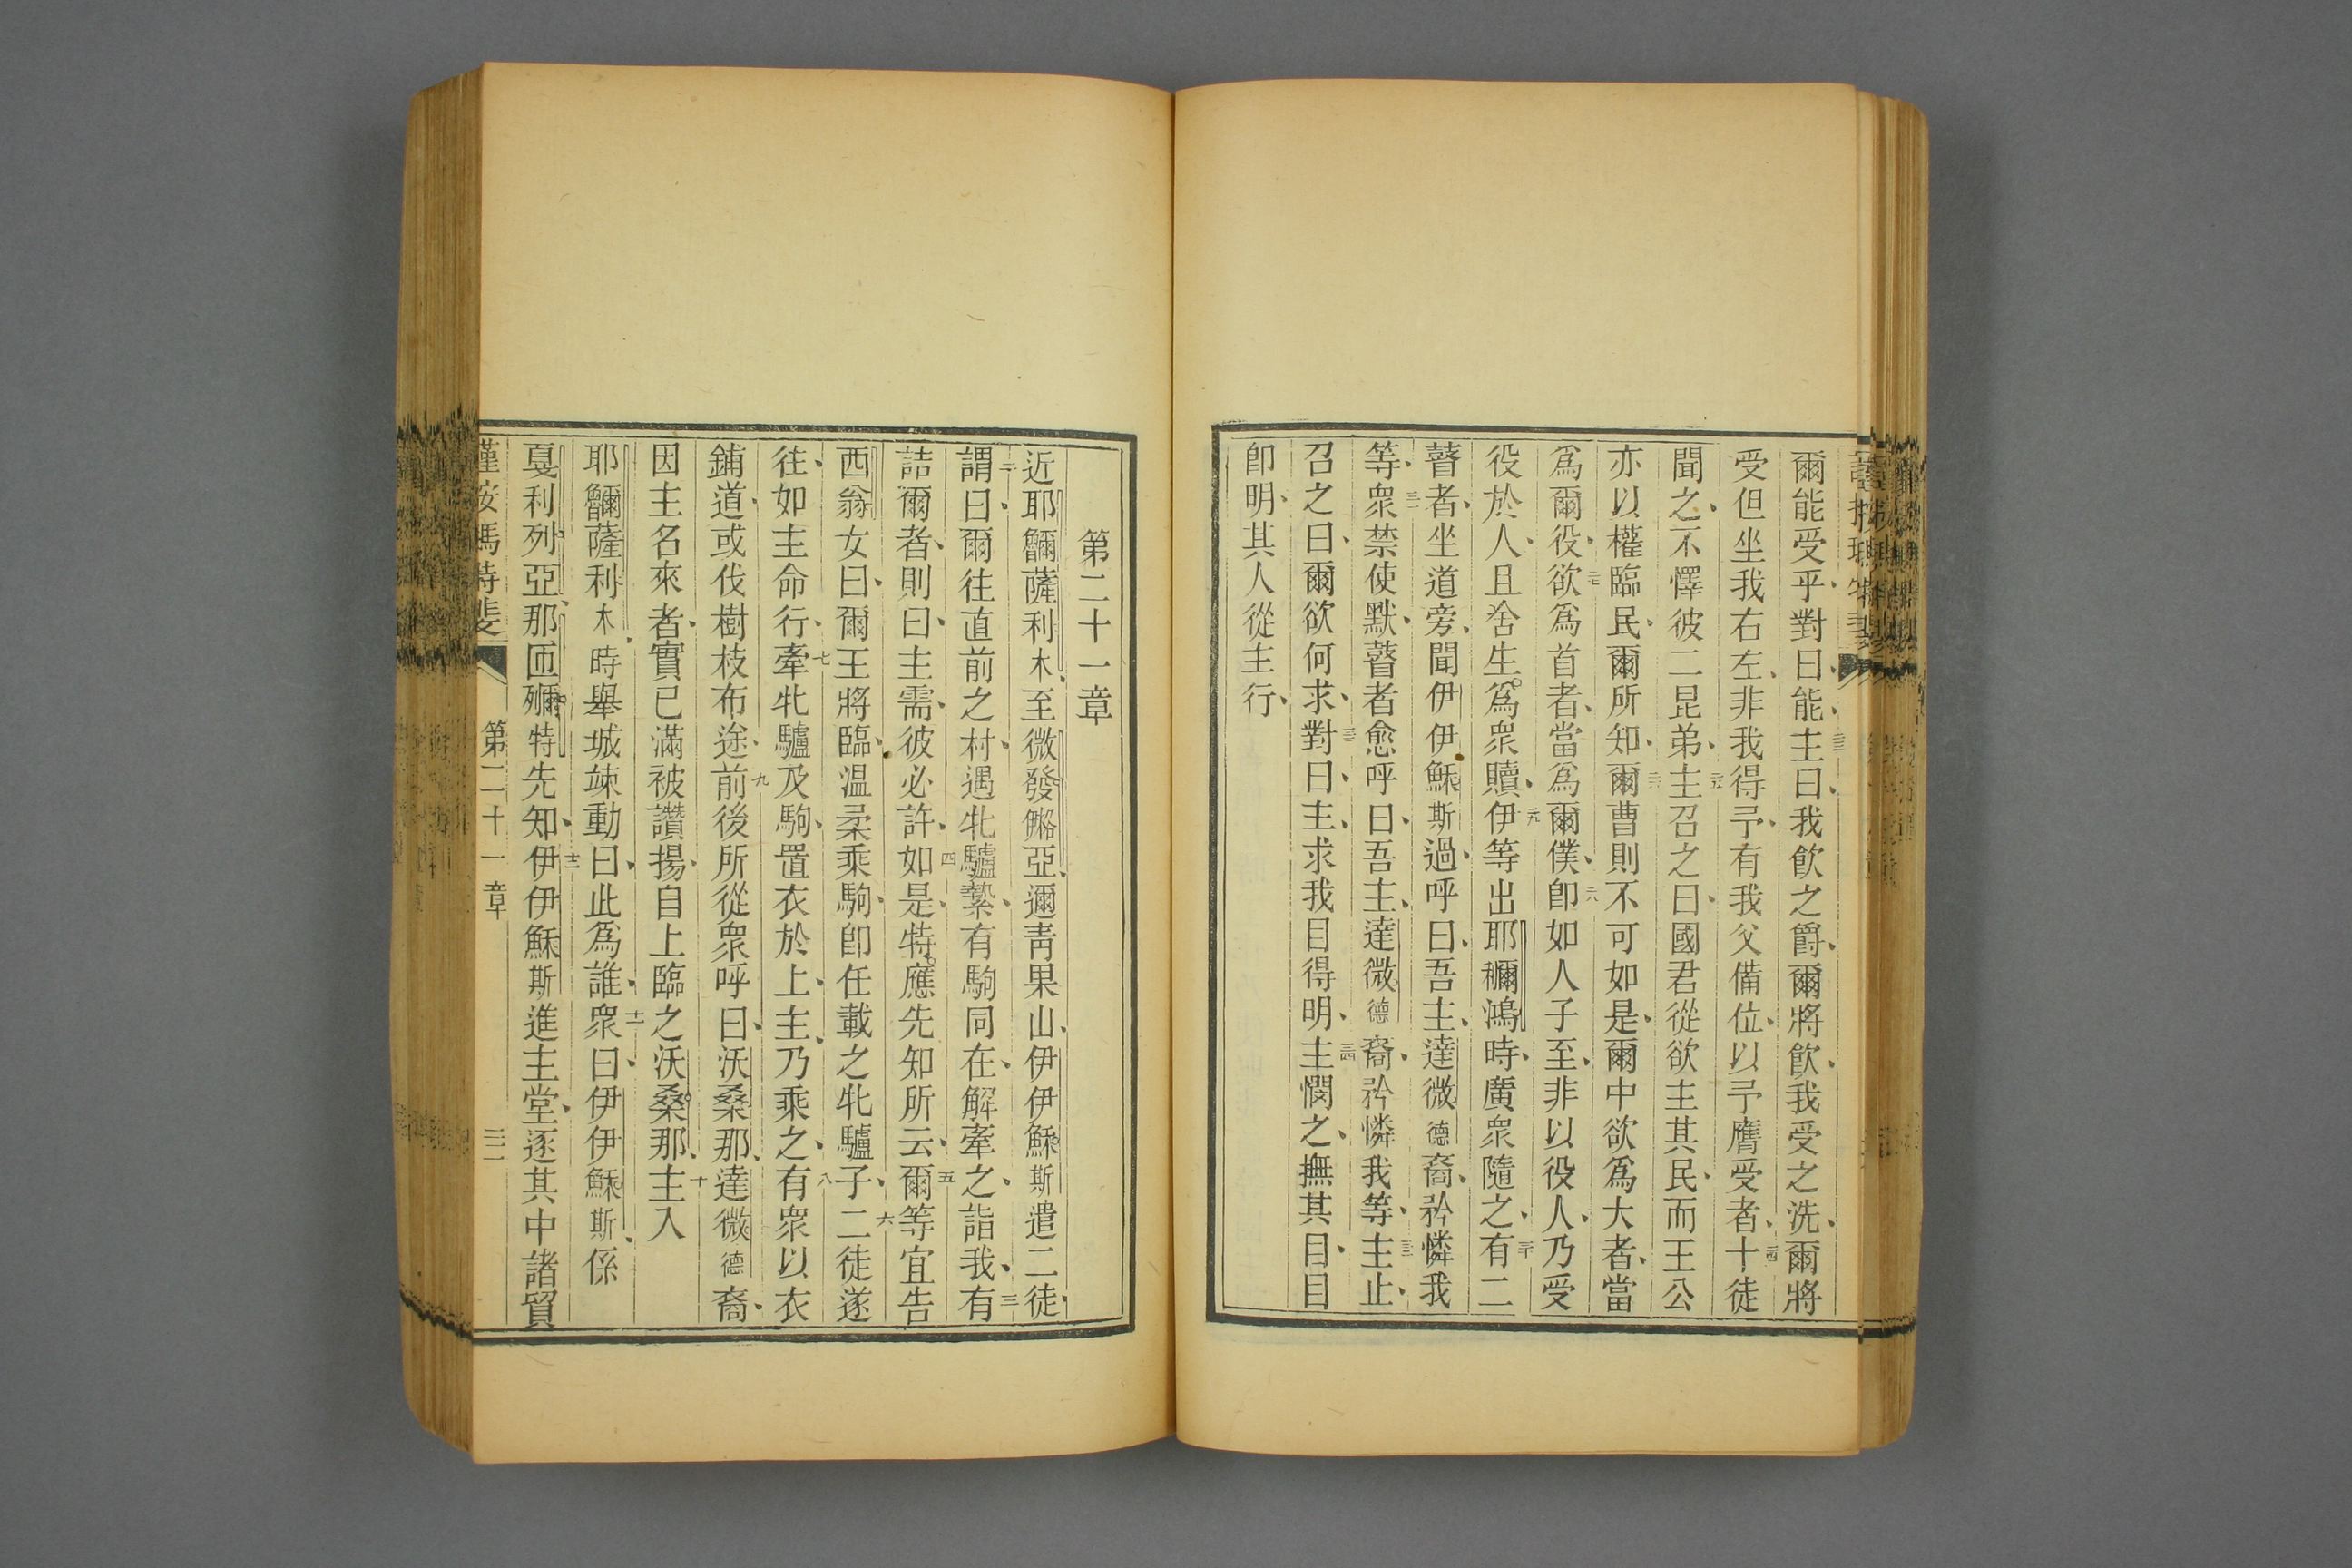 爾能受乎、對曰、能、三主曰、我飲之爵、爾將飲、我受之洗、爾將
受、但坐我右左、非我得予、有我父備位、以予膺受者、二四十徒
聞之、不懌彼二昆弟、二五主召之曰、國君從欲主其民、而王公
亦以權臨民、爾所知、二六爾曹則不可如是、爾中欲爲大者、當
爲爾役、二七欲爲首者、當爲爾僕、二八卽如人子至、非以役人、乃受
役於人、且舍生爲衆贖、二九伊等出耶禰鴻時、廣衆隨之、三十有二
瞽者、坐道旁、聞伊伊穌斯過、呼曰、吾主、達微德裔、矜憐我
等、三一衆禁使默、瞽者愈呼曰、吾主、達微德裔、矜憐我等、三二主止、
召之曰、爾欲何求、三三對曰、主、求我目得明、三四主憫之、撫其目、目
卽明、其人從主行、
第二十一章
近耶𩆸薩利木、至微發亞邇靑果山、伊伊穌斯遣二徒、
二謂曰、爾往直前之村、遇牝驢縶、有駒同在、解牽之、詣我、三有
詰爾者、則曰、主需、彼必許、四如是、特應先知所云、五爾等宜告
西翁女曰、爾王將臨、溫柔乘駒、卽任載之牝驢子、六二徒遂
往、如主命行、七牽牝驢及駒、置衣於上、主乃乘之、八有衆以衣
鋪道、或伐樹枝布途、九前後所從衆呼曰、沃桑那、達微德裔、
因主名來者、實已滿被讚揚、自上臨之沃桑那、十主入
耶薩利木時、舉城竦動曰、此爲誰、十一衆曰、伊伊穌斯、係
戛利列亞、那匝特先知、十二伊伊穌斯進主堂、逐其中諸貿
第二十一章